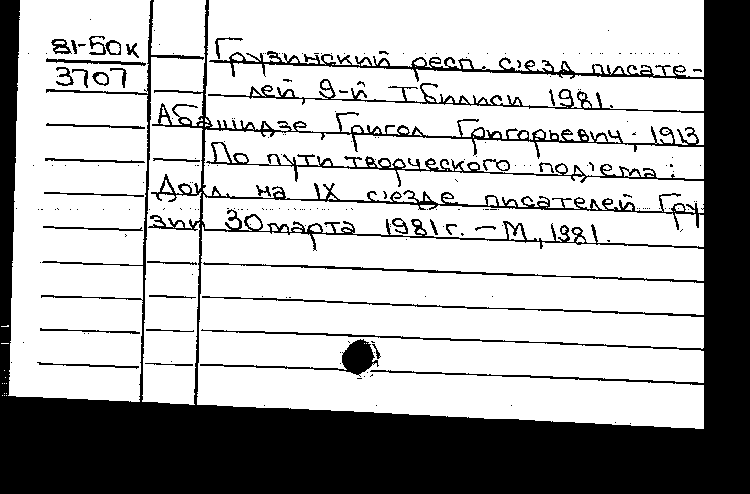 81-50к
3707
Грузинский респ. с'езд писате-
лей, 9-й. Тбилиси. 1981.
Абашидзе, Григол Григорьевич, 1913
По пути творческого под'ема:
Докл. на IX с'езде писателей Гру
зии 30 марта 1981 г. – М., 1981.